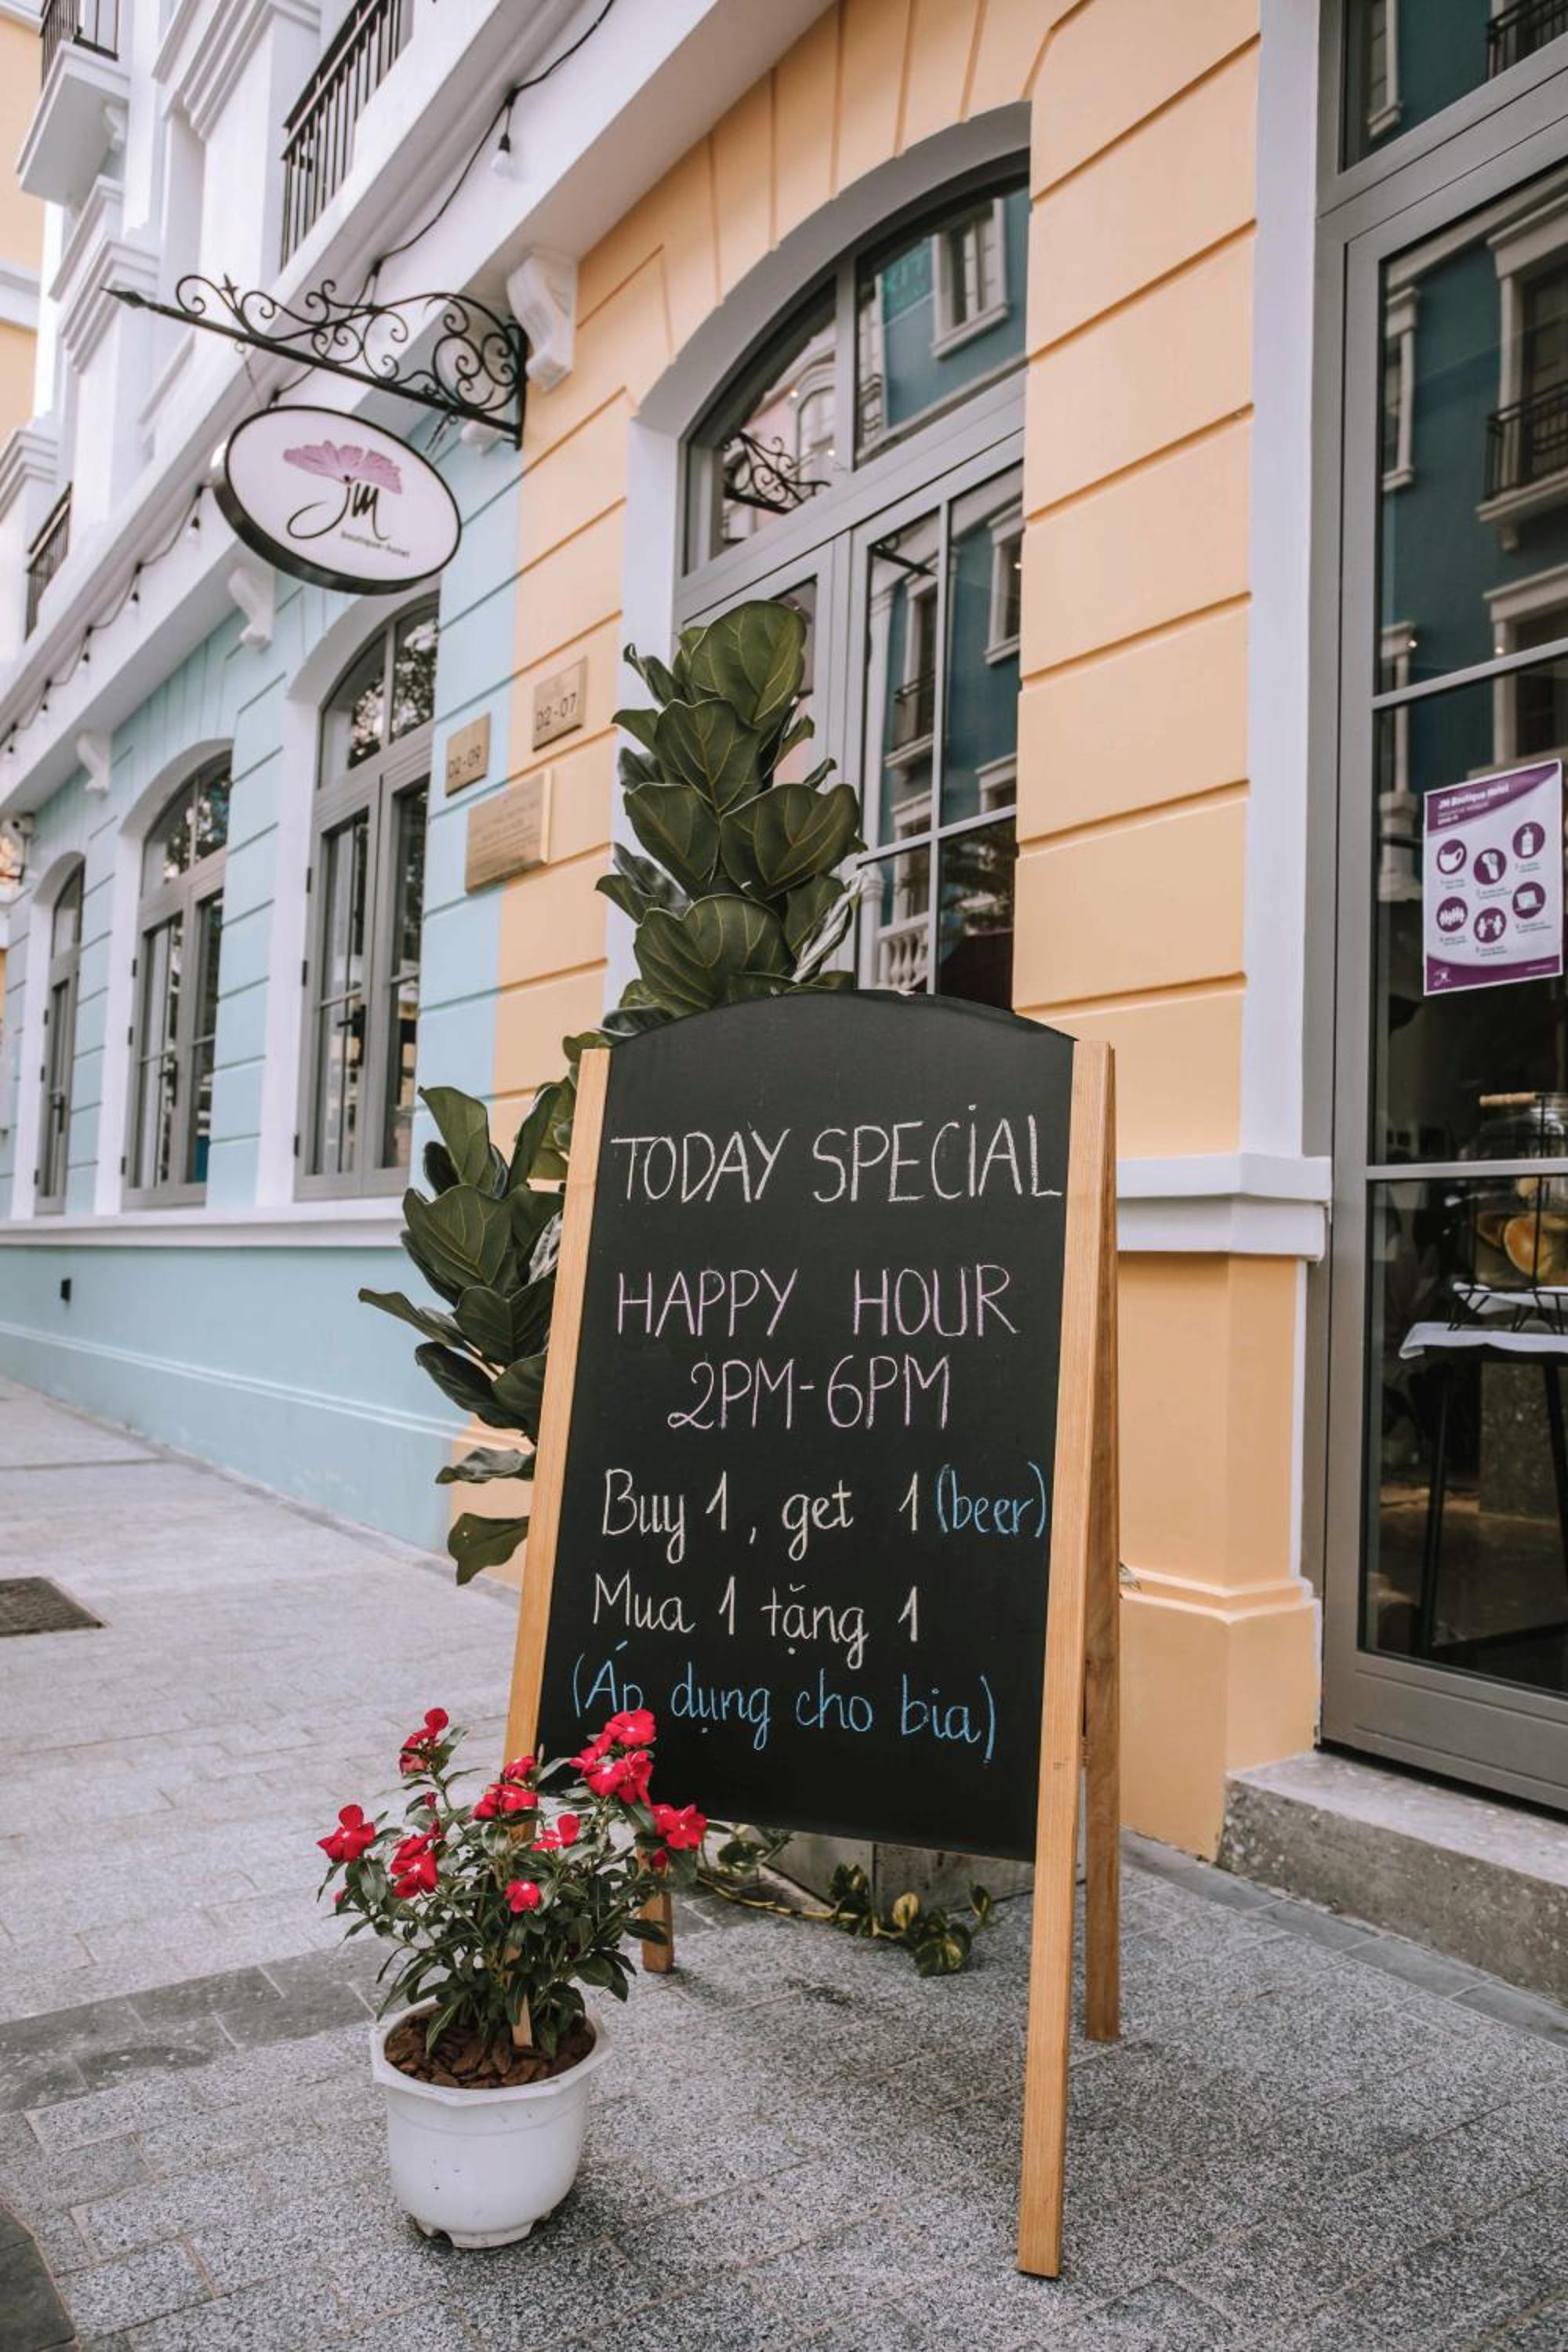 JM
boutique-hotel
D2-07
D2-09
JM Boutique Hotel
TODAY SPECIAL
HAPPY HOUR
2PM-6PM
Buy 1, get 1 (beer)
Mua 1 tặng 1
(Áp dụng cho bia)